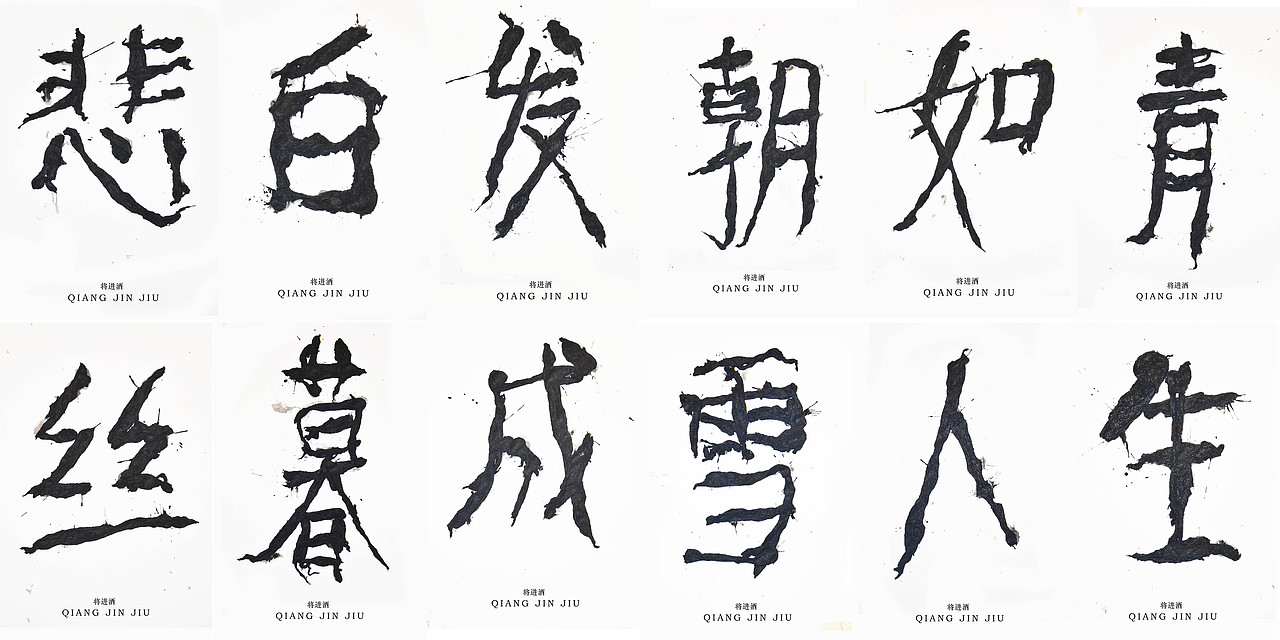 悲白发朝如青
将进酒 将进酒 将进酒 将进酒 将进酒 将进酒
QIANG JIN JIU QIANG JIN JIU QIANG JIN JIU QIANG JIN JIU QIANG JIN JIU QIANG JIN JIU
丝暮成雪人生
将进酒 将进酒 将进酒 将进酒 将进酒 将进酒
QIANG JIN JIU QIANG JIN JIU QIANG JIN JIU QIANG JIN JIU QIANG JIN JIU QIANG JIN JIU